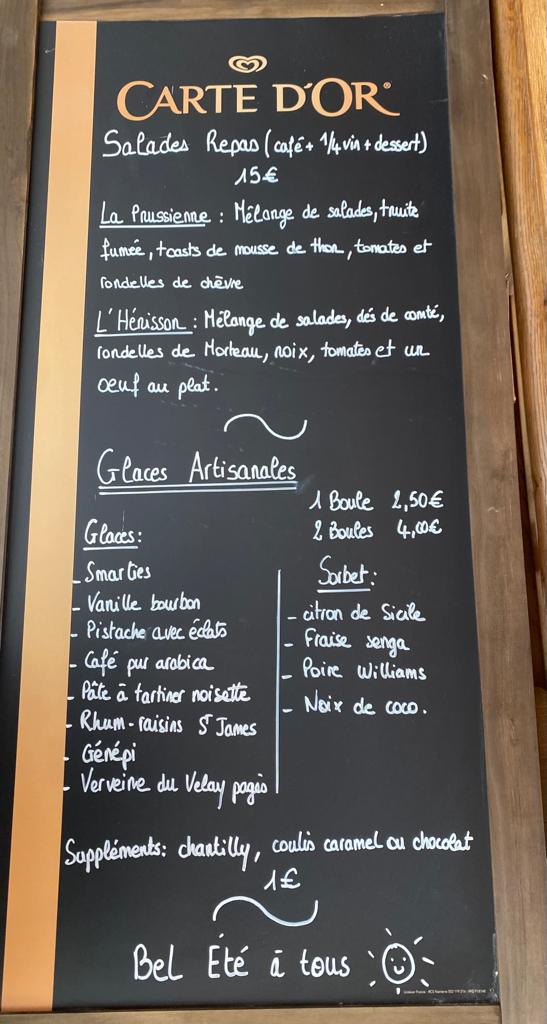 CARTE D'OR®
Salades Repas (café + 1/4 vin + dessert)
15€
La Prussienne : Mélange de salades, truite
fumée, toasts de mousse de thon, tomates et
rondelles de chèvre
L'Hérisson : Mélange de salades, dés de comté,
rondelles de Morteau, noix, tomates et un
oeuf au plat.
Glaces Artisanales
1 Boule 2,50€
2 Boules 4,00€
Glaces:
- Smarties
- Vanille bourbon
- Pistache avec éclats
- Café pur arabica
- Pâte à tartiner noisette
- Rhum-raisins St James
- Génépi
- Verveine du Velay pagès
Sorbet:
- citron de Sicile
- Fraise senga
- Poire Williams
- Noix de coco.
Suppléments: chantilly, coulis caramel ou chocolat
1€
Bel Été à tous